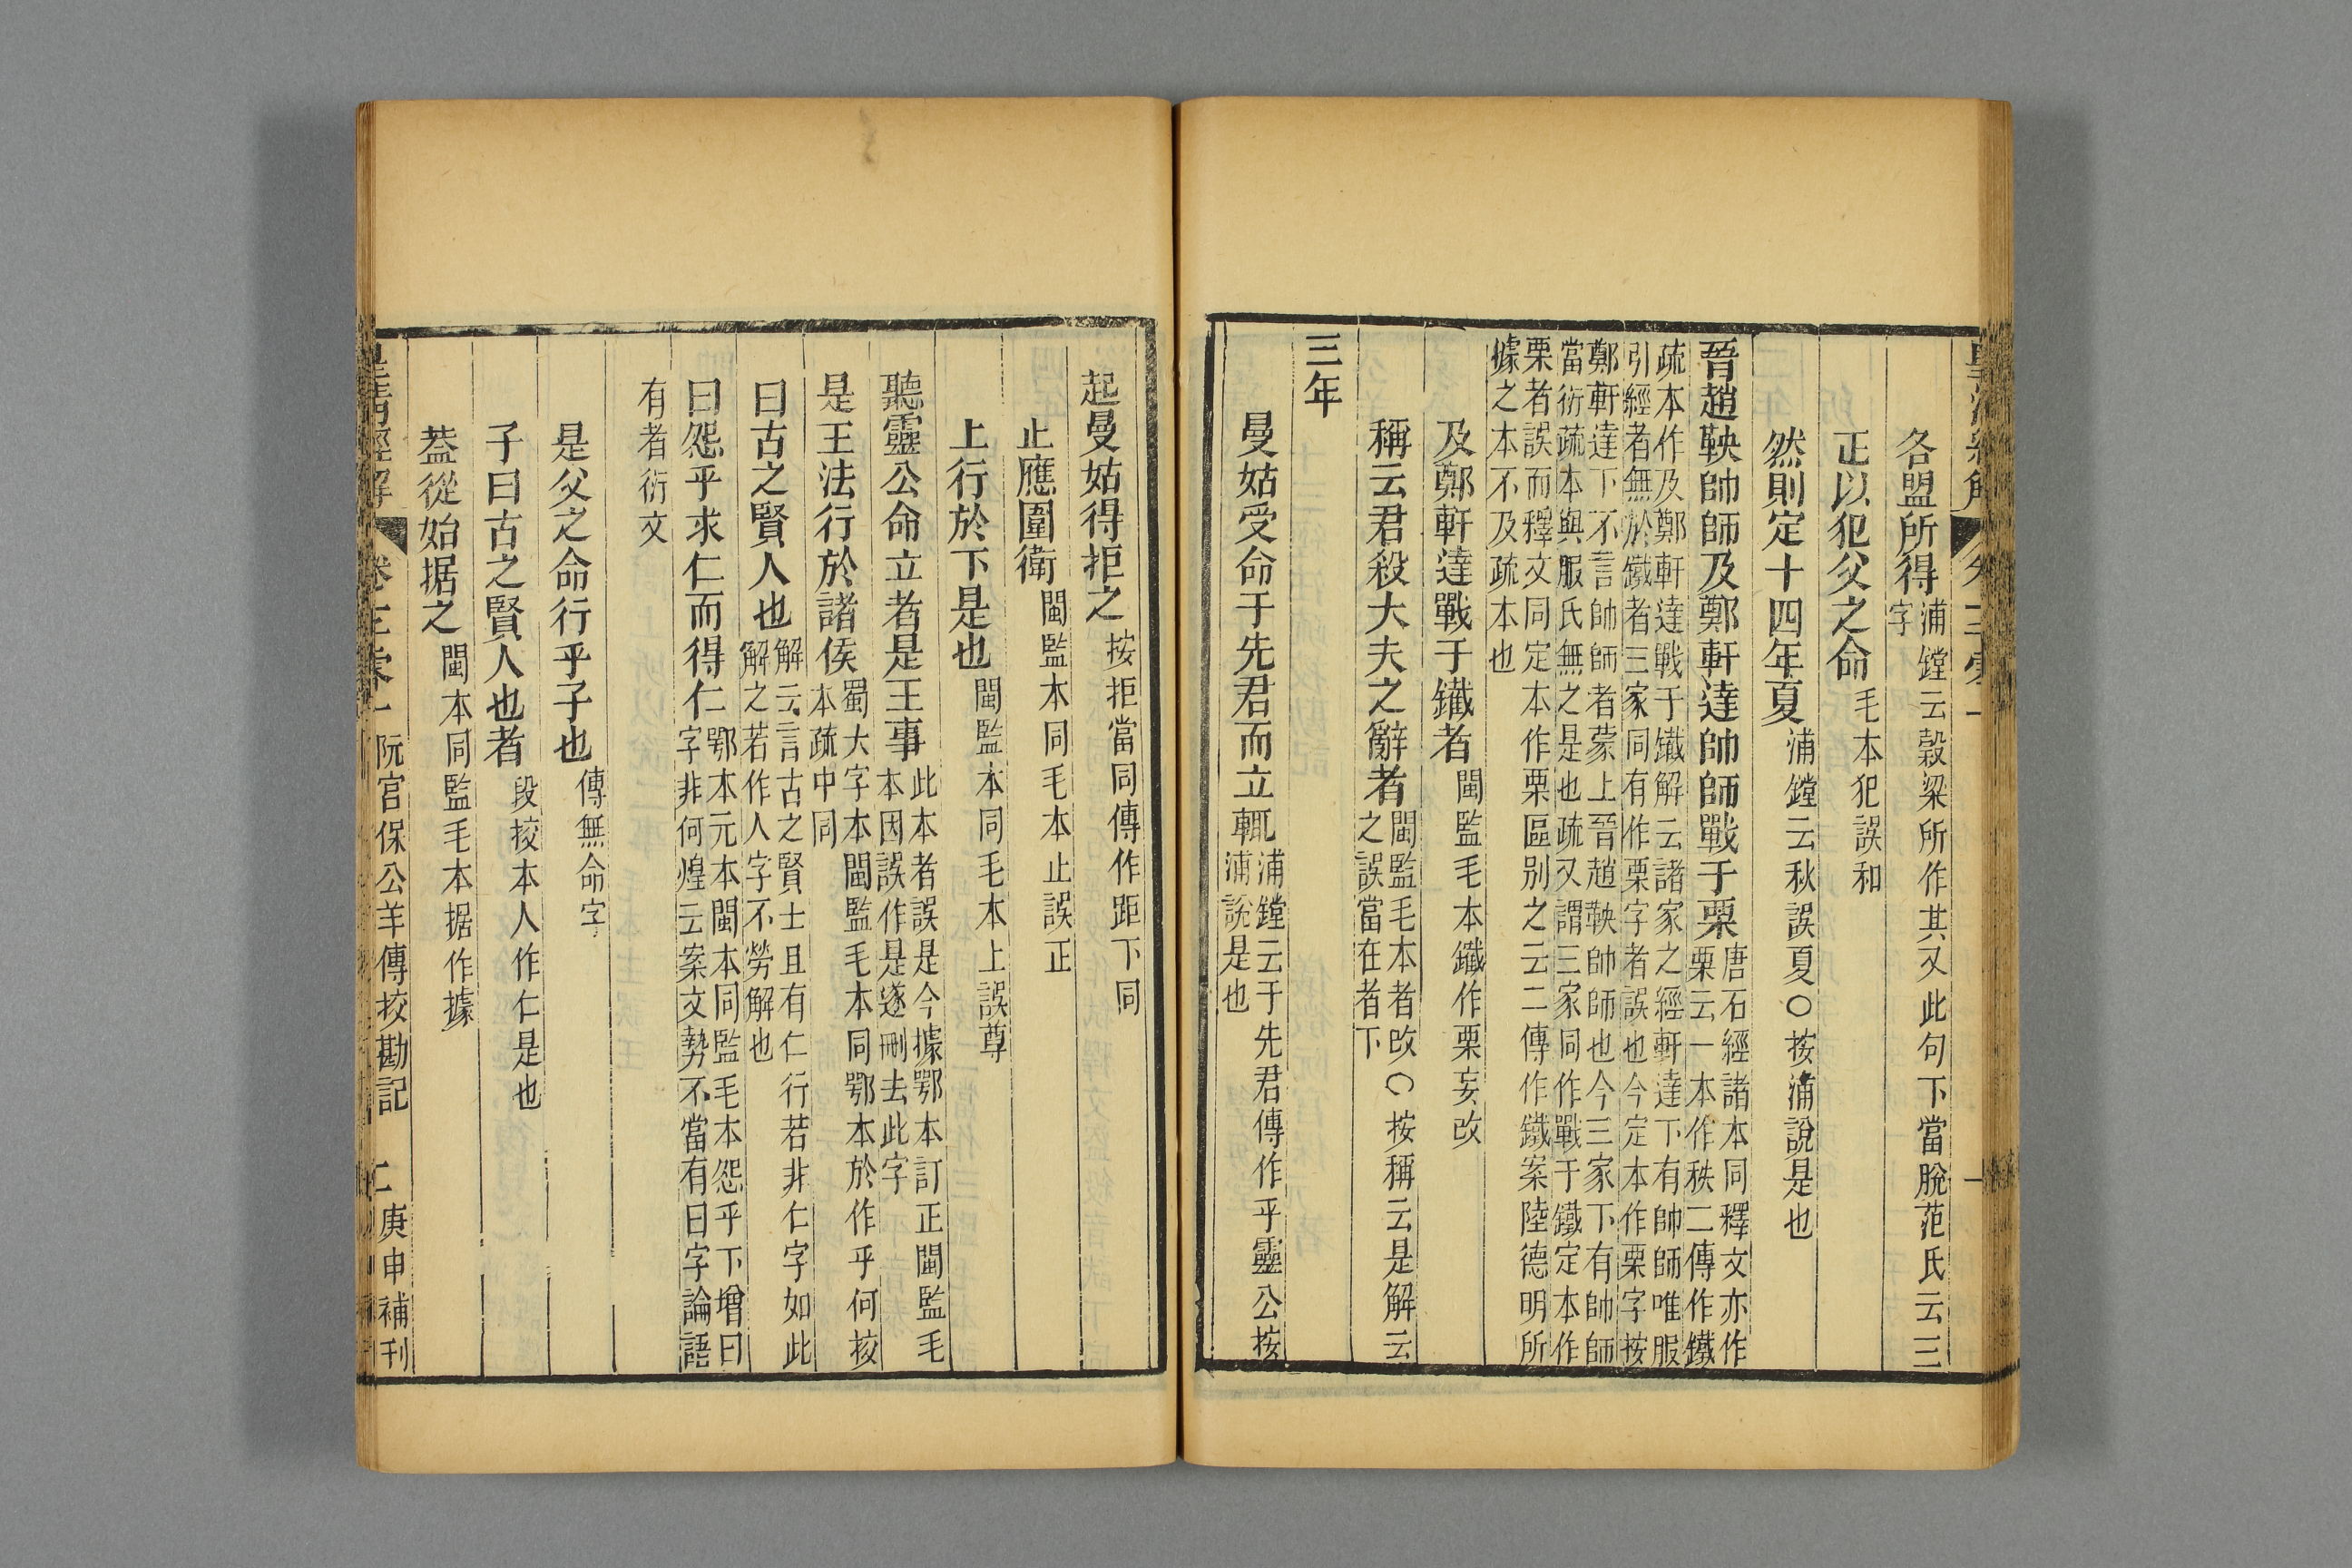 各盟所得浦鏜云穀梁所作其又此句下當脫范氏云三字
正以犯父之命毛本犯誤和
然則定十四年夏浦鏜云秋誤夏○按浦說是也
晉趙鞅帥師及鄭軒達帥師戰于栗唐石經諸本同釋文亦作栗云一本作秩二傳作鐵
疏本作及鄭軒達戰于鐵解云諸家之經軒達下有帥師唯服引經者無於鐵者三家同有作栗字者誤也今定本作栗字按
鄭軒達下不言帥師者蒙上晉趙鞅帥師也今三家下有帥師當衍疏本與服氏無之是也疏又謂三家同作戰于鐵定本作
栗者誤而釋文同定本作栗區別之云二傳作鐵案陸德明所據之本不及疏本也
及鄭軒達戰于鐵者閩監毛本鐵作栗妄改
稱云君殺大夫之辭者閩監毛本者改○按稱云是解云之誤當在者下
三年
曼姑受命于先君而立輒浦鏜云于先君傳作乎靈公按浦說是也
起曼姑得拒之按拒當同傳作距下同
止應圍衛閩監本同毛本止誤正
上行於下是也閩監本同毛本上誤尊
聽靈公命立者是王事此本者誤是今據鄂本訂正閩監毛本因誤作是遂刪去此字
是王法行於諸侯蜀大字本閩監毛本同鄂本於作乎何挍本疏中同
曰古之賢人也解云言古之賢士且有仁行若非仁字如此解之若作人字不勞解也
曰怨乎求仁而得仁鄂本元本閩本同監毛本怨乎下增曰字非何煌云案文勢不當有曰字論語
有者衍文
是父之命行乎子也傳無命字
子曰古之賢人也者段挍本人作仁是也
葢從始据之閩本同監毛本据作據
皇清經解 阮宮保公羊傳挍勘記 庚申補刊